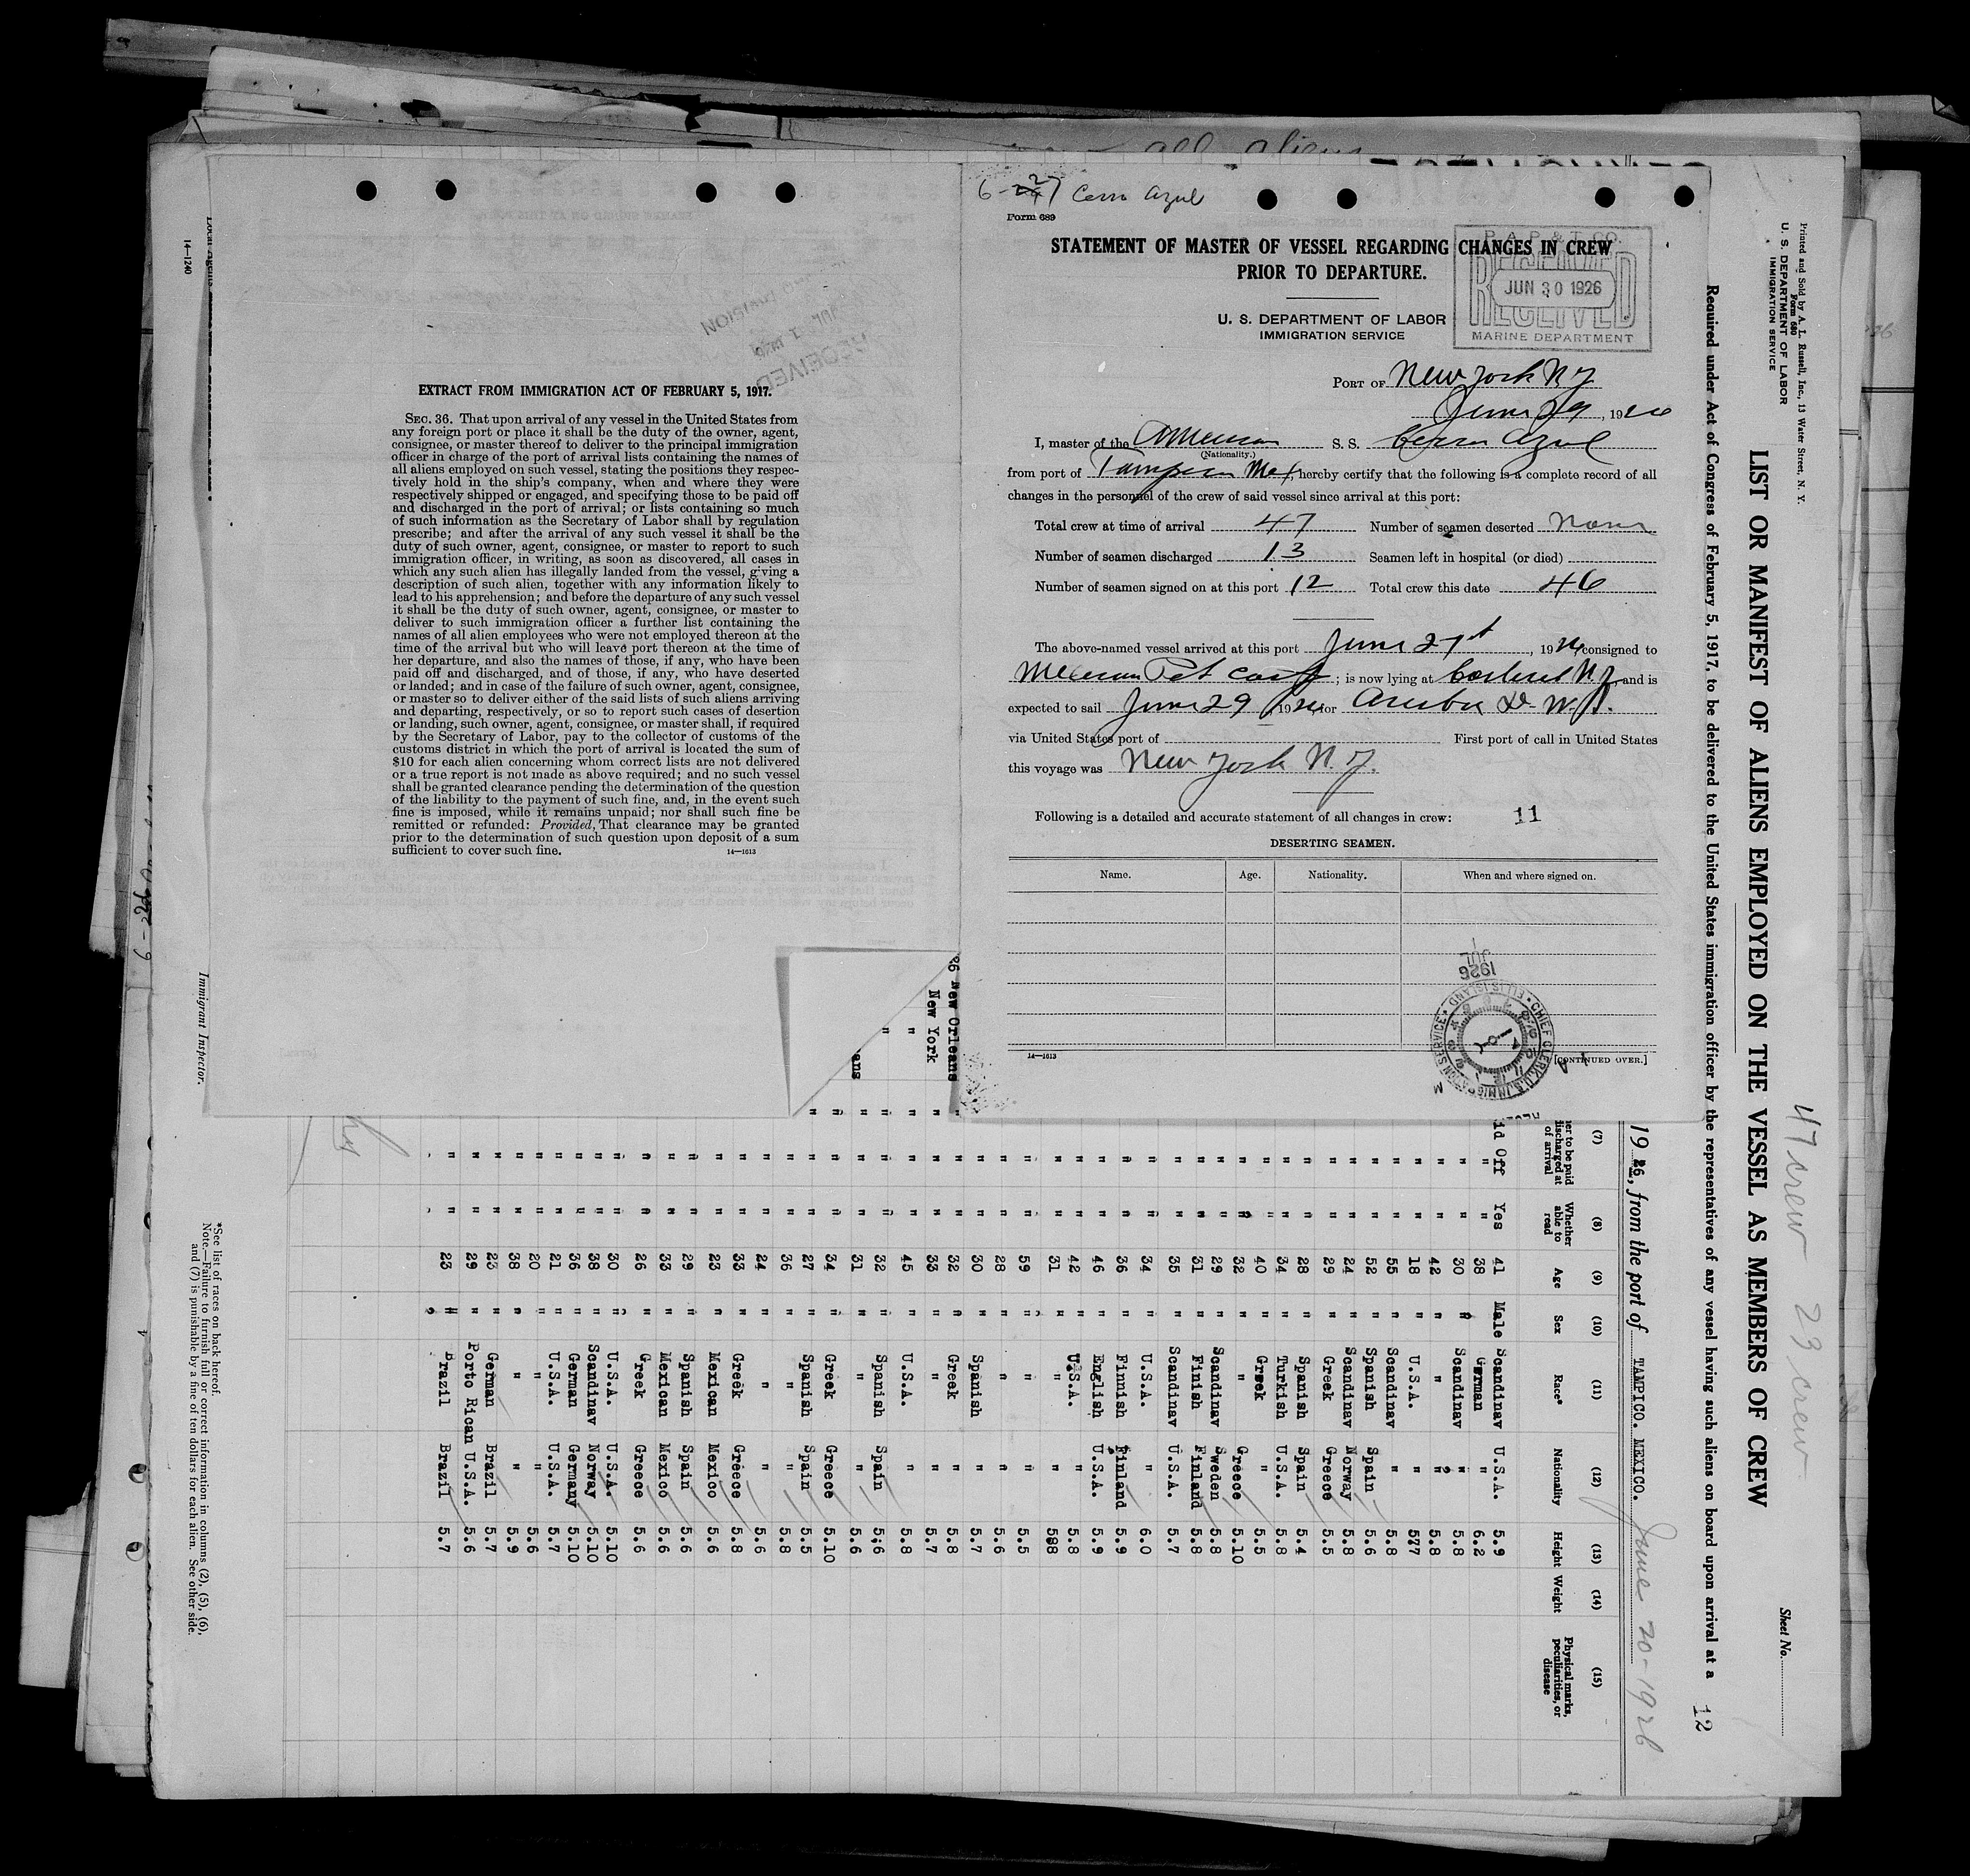 all aliens
6-227 Cerro Azul
Form 689
STATEMENT OF MASTER OF VESSEL REGARDING CHANGES IN CREW
PRIOR TO DEPARTURE.
P. A. P. & T. CO.
RECEIVED
JUN 30 1926
MARINE DEPARTMENT
U. S. DEPARTMENT OF LABOR
IMMIGRATION SERVICE
PORT OF New York N Y
June 29, 1926
I, master of the American S. S. Cerro Azul
(Nationality.)
from port of Tampico Mex, hereby certify that the following is a complete record of all
changes in the personnel of the crew of said vessel since arrival at this port:
Total crew at time of arrival 47 Number of seamen deserted None
Number of seamen discharged 13 Seamen left in hospital (or died)
Number of seamen signed on at this port 12 Total crew this date 46
The above-named vessel arrived at this port June 27th, 1926, consigned to
Mexican Pet Corp; is now lying at Carteret N J, and is
expected to sail June 29, 1926, for Aruba D. W. I.
via United States port of First port of call in United States
this voyage was New York N. Y.
Following is a detailed and accurate statement of all changes in crew: 11
DESERTING SEAMEN.
Name. Age. Nationality. When and where signed on.
14—1613
[CONTINUED OVER.]
JUL 1
1926
CHIEF CLERK, U.S. IMMIGRATION SERVICE
ELLIS ISLAND
RECEIVED
JUL 1 1926
DIVISION
EXTRACT FROM IMMIGRATION ACT OF FEBRUARY 5, 1917.
SEC. 36. That upon arrival of any vessel in the United States from
any foreign port or place it shall be the duty of the owner, agent,
consignee, or master thereof to deliver to the principal immigration
officer in charge of the port of arrival lists containing the names of
all aliens employed on such vessel, stating the positions they respec-
tively hold in the ship's company, when and where they were
respectively shipped or engaged, and specifying those to be paid off
and discharged in the port of arrival; or lists containing so much
of such information as the Secretary of Labor shall by regulation
prescribe; and after the arrival of any such vessel it shall be the
duty of such owner, agent, consignee, or master to report to such
immigration officer, in writing, as soon as discovered, all cases in
which any such alien has illegally landed from the vessel, giving a
description of such alien, together with any information likely to
lead to his apprehension; and before the departure of any such vessel
it shall be the duty of such owner, agent, consignee, or master to
deliver to such immigration officer a further list containing the
names of all alien employees who were not employed thereon at the
time of the arrival but who will leave port thereon at the time of
her departure, and also the names of those, if any, who have been
paid off and discharged, and of those, if any, who have deserted
or landed; and in case of the failure of such owner, agent, consignee,
or master so to deliver either of the said lists of such aliens arriving
and departing, respectively, or so to report such cases of desertion
or landing, such owner, agent, consignee, or master shall, if required
by the Secretary of Labor, pay to the collector of customs of the
customs district in which the port of arrival is located the sum of
$10 for each alien concerning whom correct lists are not delivered
or a true report is not made as above required; and no such vessel
shall be granted clearance pending the determination of the question
of the liability to the payment of such fine, and, in the event such
fine is imposed, while it remains unpaid; nor shall such fine be
remitted or refunded: Provided, That clearance may be granted
prior to the determination of such question upon deposit of a sum
sufficient to cover such fine.
14—1613
Printed and Sold by A. L. Russell, Inc., 13 Water Street, N. Y.
Form 680
U. S. DEPARTMENT OF LABOR
IMMIGRATION SERVICE
47 crew 23 crew
Sheet No.
LIST OR MANIFEST OF ALIENS EMPLOYED ON THE VESSEL AS MEMBERS OF CREW
Required under Act of Congress of February 5, 1917, to be delivered to the United States immigration officer by the representatives of any vessel having such aliens on board upon arrival at a
12
1926, from the port of TAMPICO. MEXICO. June 20-1926
(7) (8) (9) (10) (11) (12) (13) (14) (15)
er to be paid discharged at of arrival Whether able to read Age Sex Race* Nationality Height Weight Physical marks, peculiarities, or disease
id Off Yes 41 Male Scandinav U.S.A. 5.9
" " 38 " German " 6.2
" " 30 " Scandinav " 5.8
" " 42 " " " 5.8
" " 18 " U.S.A. " 577
" " 55 " Scandinav " 5.8
" " 52 " Spanish Spain 5.6
" " 24 " Scandinav Norway 5.8
" " 29 " Greek Greece 5.5
" " 28 " Spanish Spain 5.4
" " 34 " Turkish U.S.A. 5.8
" " 40 " Greek " 5.5
" " 32 " " Greece 5.10
" " 29 " Scandinav Sweden 5.8
" " 31 " Finish Finland 5.8
" " 35 " Scandinav U.S.A. 5.7
" " 34 " U.S.A. " 6.0
" " 36 " Finnish Finland 5.9
" " 46 " English U.S.A. 5.9
" " 42 " U.S.A. " 5.8
" " 31 " " " 588
" " 59 " " " 5.5
" " 28 " " " 5.6
" " 30 " Spanish " 5.7
26 New Orleans " " 32 " Greek " 5.8
New York " " 33 " " " 5.7
" " " 45 " U.S.A. " 5.8
" " " 32 " Spanish Spain 5.6
ans " " 31 " " " 5.6
" " 34 " Greek Greece 5.10
" " 27 " Spanish Spain 5.5
" " 36 " " " 5.8
" " 24 " " " 5.6
" " 33 " Greek Greece 5.8
" " 23 " Mexican Mexico 5.6
" " 29 " Spanish Spain 5.6
" " 33 " Mexican Mexico 5.6
" " 26 " Greek Greece 5.6
" " 30 " U.S.A. U.S.A. 5.10
" " 38 " Scandinav Norway 5.10
" " 36 " German Germany 5.10
" " 21 " U.S.A. U.S.A. 5.7
" " 20 " " " 5.6
" " 38 " " " 5.9
" " 23 " German Brazil 5.7
" " 29 " Porto Rican U.S.A. 5.6
" " 23 " Brazil Brazil 5.7
14—1240
Immigrant Inspector.
*See list of races on back hereof.
Note.—Failure to furnish full or correct information in columns (2), (5), (6),
and (7) is punishable by a fine of ten dollars for each alien. See other side.